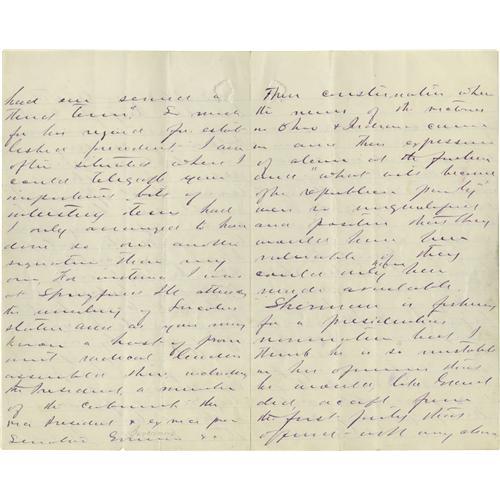 had ever served a
third term." So much
for his regard for estab
lished precedent. I am
often situated where I
could telegraph you
important bits of
interesting items had
I only arranged to have
done so over another
signature than my
own. For instance I was
at Springfield Ills attending
the unveiling of Lincolns
statue and as you may
know a host of prom
inent radical leaders
assembled there including
the President, a number
of the cabinet the
vice President & ex vice pres
Senators &c
Their consternation when
the news of the victories
in Ohio & Indiana came
in and their expressions
of alarm at the future
and "what will become
of the republican party"
were so undisguised
and positive that they
would have been
valuable if they
could only have been
made available.
Sherman is fishing
for a presidential
nomination but I
think he is so unstable
in his opinions that
he would like Grant
did, accept from
the first party that
offered - with any